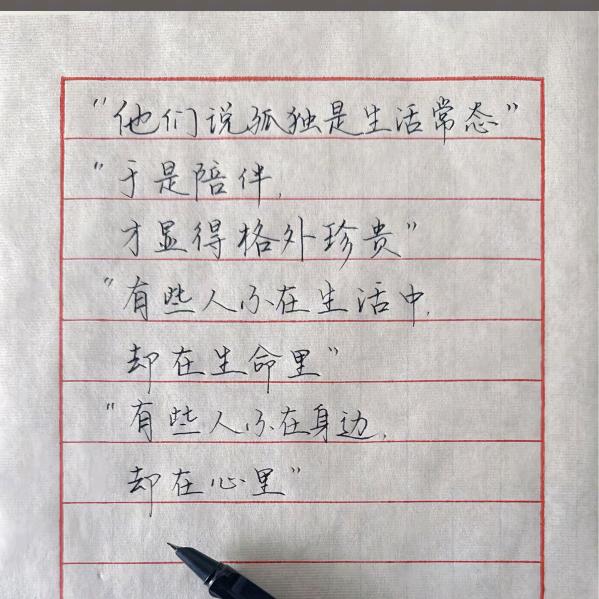 “他们说孤独是生活常态”
“于是陪伴,
才显得格外珍贵”
“有些人不在生活中,
却在生命里”
“有些人不在身边,
却在心里”